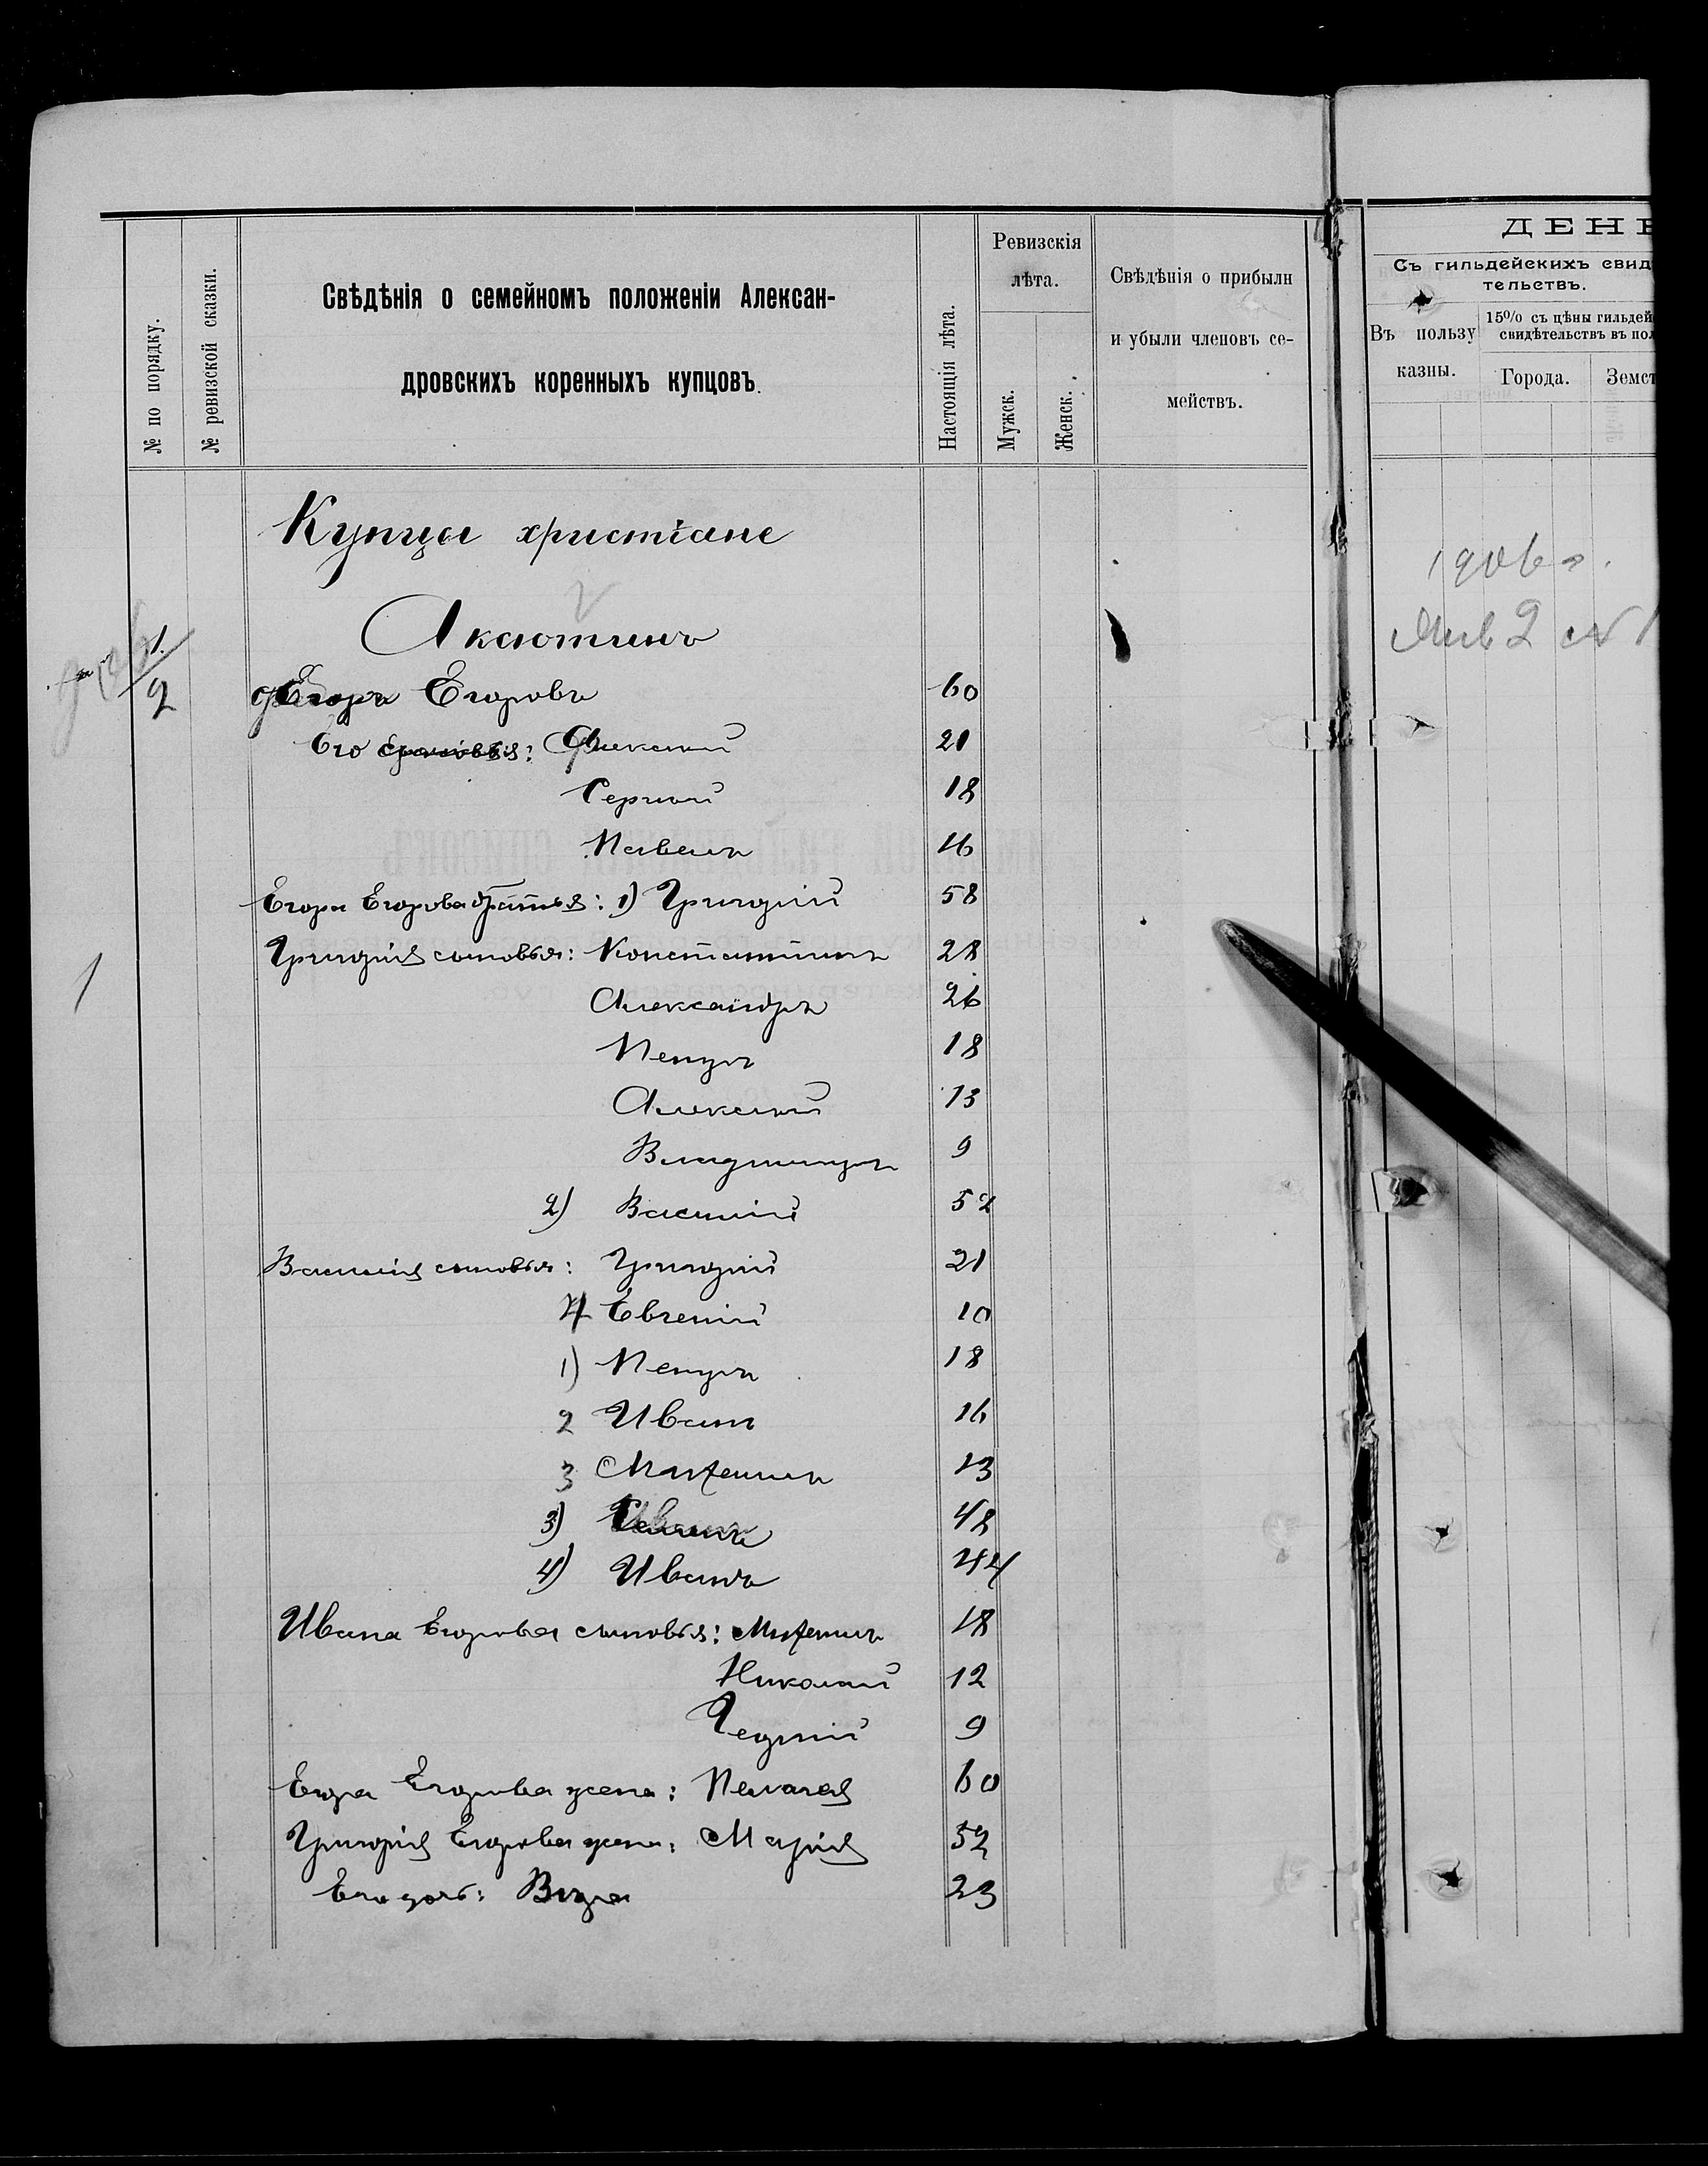 № по порядку.
№ ревизской сказки.
Свѣдѣнія о семейномъ положеніи Алексан-
дровскихъ коренныхъ купцовъ.
Настоящія лѣта.
Ревизскія
лѣта.
Мужск.
Женск.
Свѣдѣнія о прибыли
и убыли членовъ се-
мействъ.
Купцы христіане
Аксютинъ
1
2
Егоръ Егоровъ 60
Его сыновья: Алексѣй 21
Сергѣй 18
Павелъ 16
Егора Егорова братья: 1) Григорій 58
1
Григорія сыновья: Константинъ 28
Александръ 26
Петръ 18
Алексѣй 13
Владиміръ 9
2) Василій 52
Василія сыновья: Григорій 21
4 Евгеній 10
1) Петръ 18
2 Иванъ 16
3 Михаилъ 13
3) 48
4) Иванъ 44
Ивана Егорова сыновья: Михаилъ 18
Николай 12
Георгій 9
Егора Егорова жена: Пелагея 60
Григорія Егорова жена: Марія 52
Его дочь: Вѣра 23
ДЕНЕ
Съ гильдейскихъ свид
тельствъ.
Въ пользу
казны.
15% съ цѣны гильдей
свидѣтельствъ въ пол
Города.
Земст
1906 г.
Янв 2 № 1